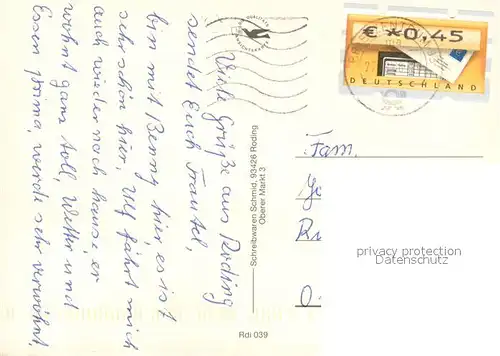 Viele Grüße aus Roding
sendet Euch Traudel,
bin mit Benny hier, es ist
sehr schön hier, Ulf fährt mich
auch wieder nach hause er
wohnt ganz toll, Wetter und
Essen prima, werde sehr verwöhnt.
Schreibwaren Schmid, 93426 Roding
Oberer Markt 3
Rdi 039
€ *0,45
DEUTSCHLAND
Fam.
privacy protection
Datenschutz